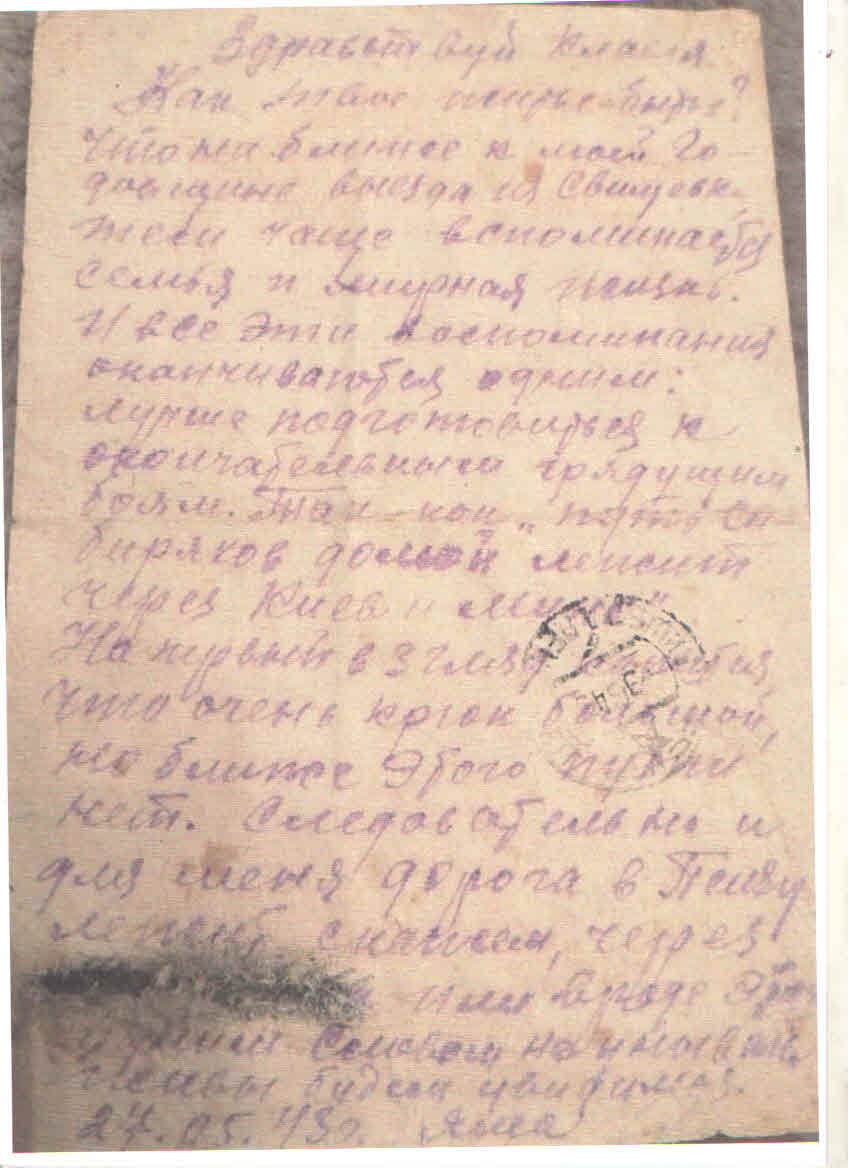 Здравствуй Клася
Как твое житье-бытье?
Что ни ближе к моей го-
довщине выезда из
тем чаще вспоминается
семья и мирная жизнь.
И все эти воспоминания
оканчиваются одним:
лучше подготовиться к
окончательным грядущим
боям. Так-как „путь си-
биряков домой лежит
через Киев и Минск"
На первый взгляд кажется,
что очень крюк большой,
но ближе этого пути
нет. Следовательно и
для меня дорога в Пензу
лежит скажем, через
или вроде это
Живы будем увидимся.
27.05.43г. Яша